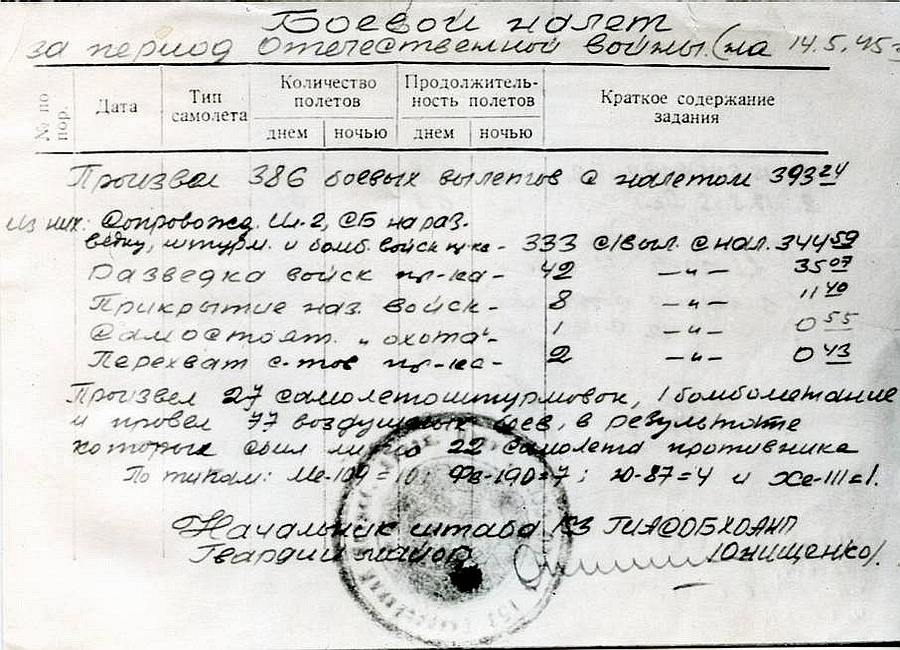 Боевой налет
за период Отечественной войны (на 14.5.45
№ по пор.
Дата
Тип самолета
Количество полетов
Продолжитель-
ность полетов
Краткое содержание задания
днем ночью днем ночью
Произвел 386 боевых вылетов с налетом 393 24
из них: Сопровожд. Ил-2, СБ на раз.
ведку, штурм. и бомб. войск пр-ка - 333 с/выл. с нал. 344 59
Разведка войск пр-ка - 42 —„— 35 07
Прикрытие наз. войск - 8 —„— 11 40
Самостоят. „охота" - 1 —„— 0 55
Перехват с-тов пр-ка - 2 —„— 0 43
Произвел 27 самолетоштурмовок, 1 бомбометание
и провел 77 воздушных боев, в результате
которых сбил лично 22 самолета противника
По типам: Ме-109 = 10; Фв-190 = 7; Ю-87 = 4 и Хе-111 = 1.
Начальник штаба 153 ГИАСОБКОАНП
Гвардии майор /Онищенко/.